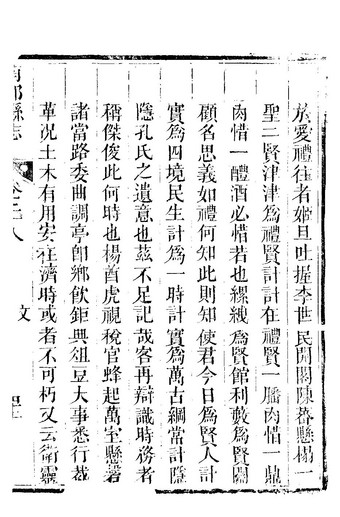 於愛禮往者姬旦吐握李世民開閣陳蕃懸榻一
聖二賢津津爲禮賢計計在禮賢一膰肉惜一鼎
肉惜一醴酒必惜若也縲絏爲賢館利藪爲賢闗
顧名思義如禮何知此則知使君今日爲賢人計
實爲四境民生計爲一時計實爲萬古綱常計隱
隱孔氏之遺意也茲不足記哉客再辯識時務者
稱傑俊此何時也楊酋虎視稅官蜂起萬室懸罄
諸當路委曲調亭卽鄉飲鉅典俎豆大事悉行裁
革况土木有用安在濟時或者不可朽又云衛靈
南部縣志
文